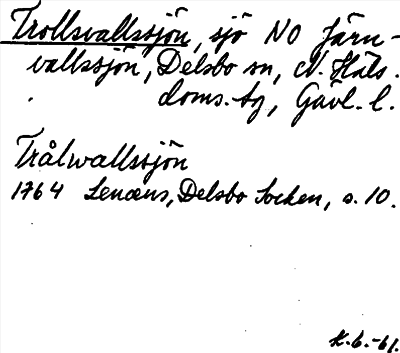 Trollsvallssjön, sjö NO Järn-
vallssjön, Delsbo sn, N. Häls.
doms.-sg, Gävl. l.
Trålwallssjön
1764 Lenæus, Delsbo Socken, s. 10.
K.G.-61.